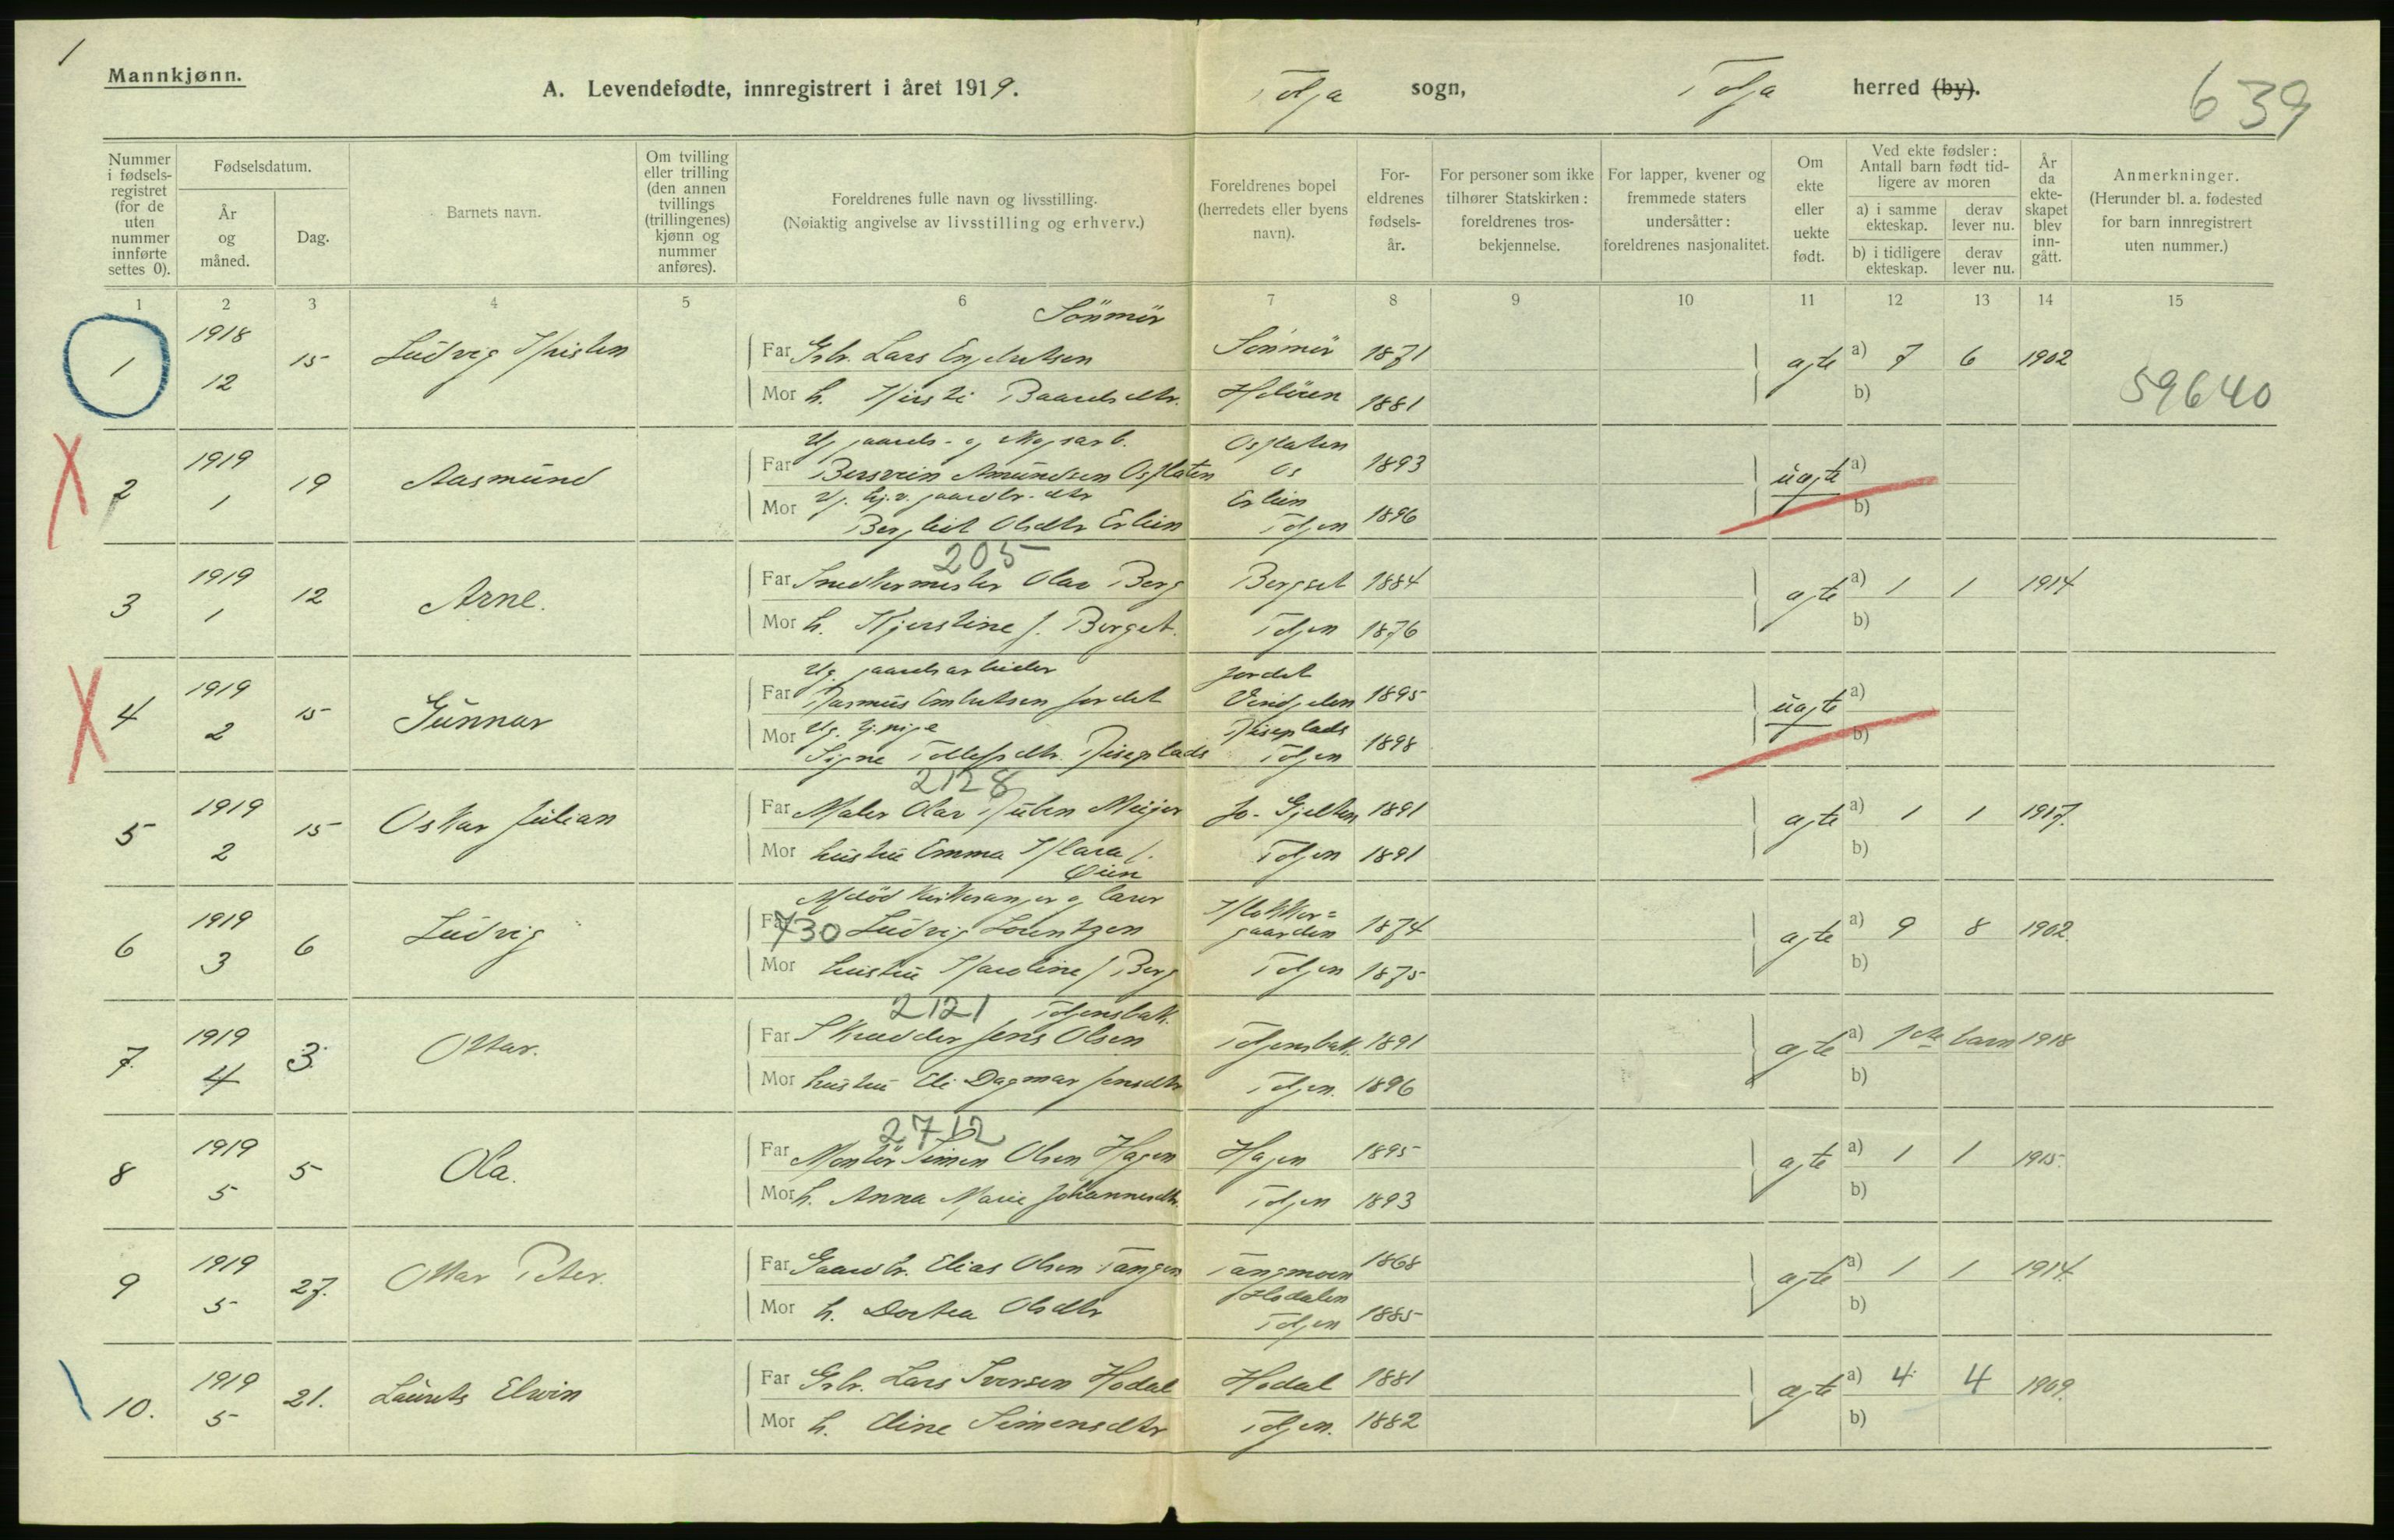 1
Mannkjønn.
A. Levendefødte, innregistrert i året 1919.
Tolga sogn, Tolga herred (by).
639
Nummer i fødselsregistret (for de uten nummer innførte settes 0).
Fødselsdatum.
År og måned.
Dag.
Barnets navn.
Om tvilling eller trilling (den annen tvillings (trillingenes) kjønn og nummer anføres).
Foreldrenes fulle navn og livsstilling.
(Nøiaktig angivelse av livsstilling og erhverv.)
Foreldrenes bopel (herredets eller byens navn).
Foreldrenes fødselsår.
For personer som ikke tilhører Statskirken: foreldrenes trosbekjennelse.
For lapper, kvener og fremmede staters undersåtter: foreldrenes nasjonalitet.
Om ekte eller uekte født.
Ved ekte fødsler: Antall barn født tidligere av moren
a) i samme ekteskap.
derav lever nu.
b) i tidligere ekteskap.
derav lever nu.
År da ekteskapet blev inngått.
Anmerkninger.
(Herunder bl. a. fødested for barn innregistrert uten nummer.)
1 2 3 4 5 6 7 8 9 10 11 12 13 14 15
Sönmör
1 1918 12 15 Ludvig Kristen
Far Grbr. Lars Engebretsen Sönmör 1871
Mor h. Kirsti Baardsdtr. Holöien 1881
ægte a) 7 6 1902
b)
59640
Ug. gaards- og skogsarb.
2 1919 1 19 Aasmund
Far Bersvein Amundsen Osplaten Osplaten Os 1893
Mor Ug. hj.v. gaardbr. dtr Bergliot Olsdtr Erlien Erlien Tolgen 1896
uægte a)
b)
205
3 1919 1 12 Arne.
Far Snedkermester Olav Berg Bergset 1884
Mor h. Kjerstine f. Berget. Tolgen 1876
ægte a) 1 1 1914
b)
Ug. gaardsarbeider
4 1919 2 15 Gunnar
Far Rasmus Embretsen Jordet Jordet Vingelen 1895
Mor Ug. tj.pige Signe Tollefsdtr. Riseplads Riseplads Tolgen 1898
uægte a)
b)
2128
5 1919 2 15 Oskar Julian
Far Maler Olav Ruben Meijer Jo-Gjelten 1891
Mor hustru Emma Klara f. Öien Tolgen 1891
ægte a) 1 1 1917.
b)
730
6 1919 3 6 Ludvig
Far Kirkesanger og lærer Ludvig Lorentzen Klokkergaarden 1874
Mor hustru Karoline f Berg Tolgen 1875
ægte a) 9 8 1902
b)
2121 Tolgensbak.
7. 1919 4 3. Ottar.
Far Skrædder Jens Olsen Tolgensbak. 1891
Mor hustru Eli Dagmar Jensdtr Tolgen. 1896
ægte a) 1ste barn 1918
b)
2712
8 1919 5 5 Ola.
Far Montör Simen Olsen Hagen Hagen 1895
Mor h. Anna Marie Johannesdtr. Tolgen 1893
ægte a) 1 1 1915.
b)
9 1919 5 27. Ottar Peter.
Far Gaardbr. Elias Olsen Tangen Tangmoen 1868
Mor h. Dortea Olsdtr Hodalen Tolgen 1885
ægte a) 1 1 1914
b)
10. 1919 5 21. Laurits Elvin
Far Grbr. Lars Iversen Hodal Hodal 1881
Mor h. Eline Simensdtr Tolgen. 1882
ægte a) 4 4 1909.
b)